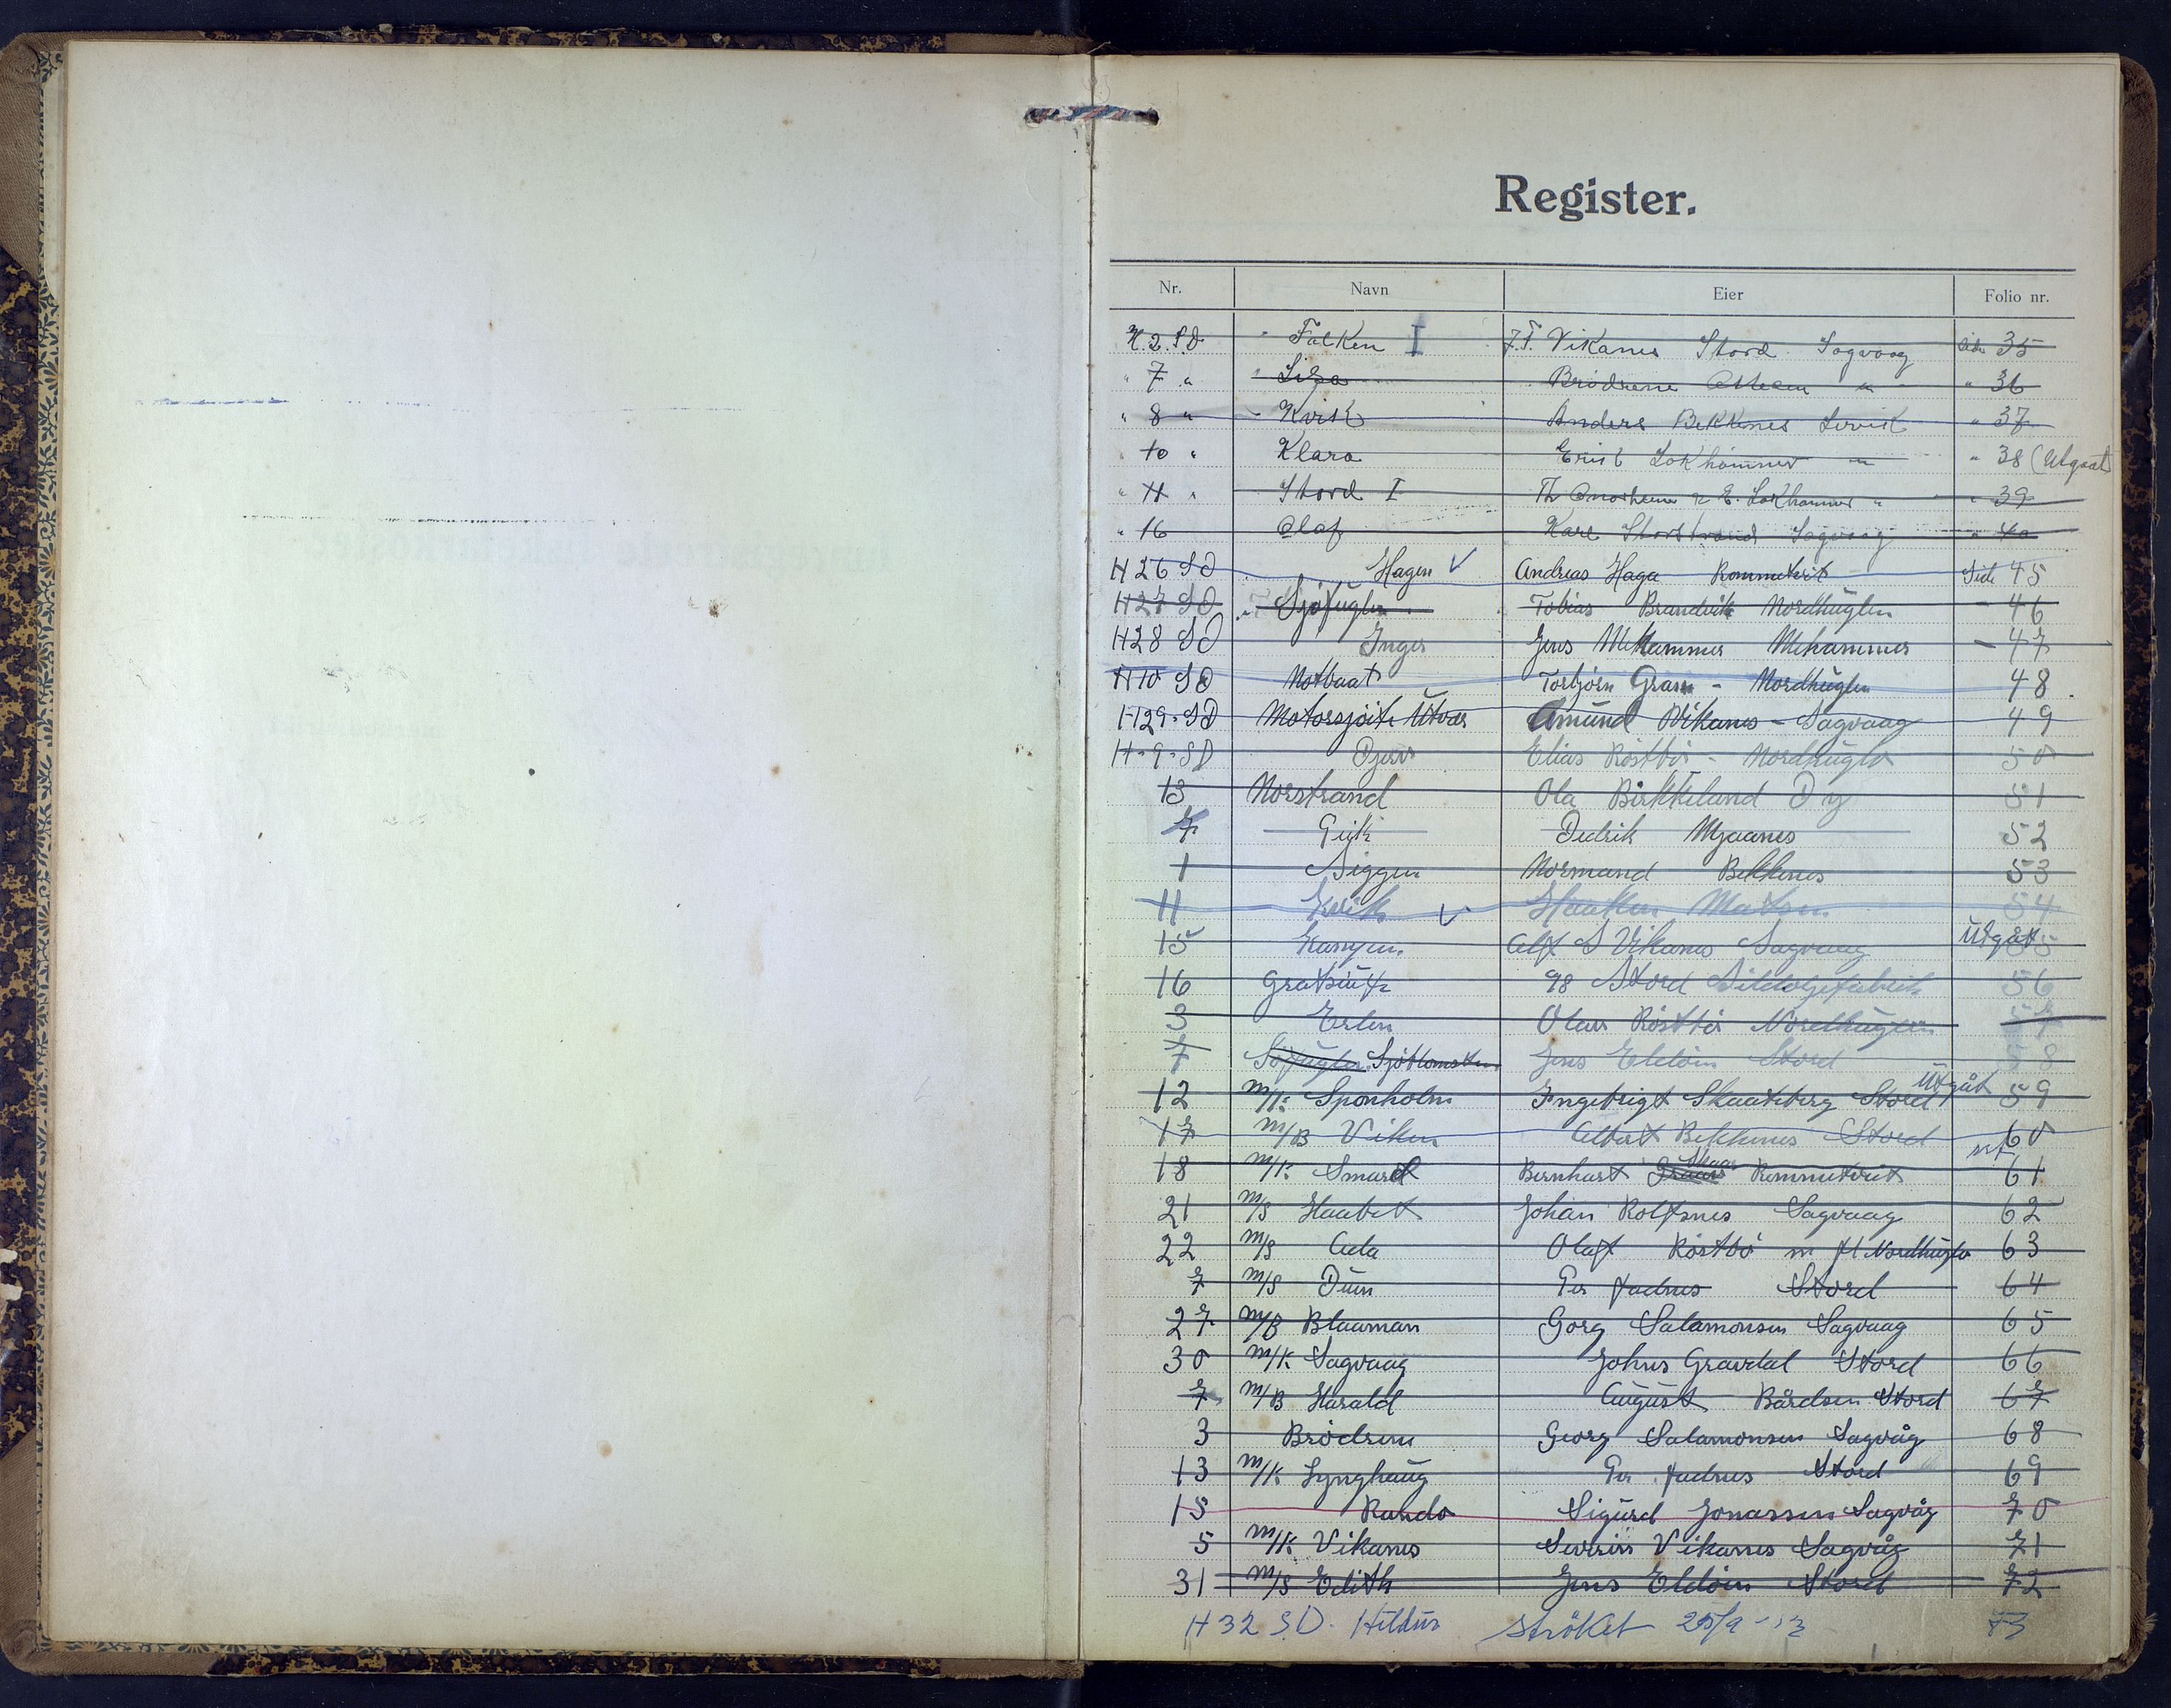 Register.
Nr. Navn Eier Folio nr.
H. 2. S.D. Falken I J.T. Vikanes Stord Sagvaag Side 35
" 7 " Brödrene " " 36
" 8 " Kvik Anders Bekkenes Lervik " 37
" 10 " Klara Lokhammer " " 38 (Utgaat
" 11 " Stord I Th. E. Lokhammer " " 39
" 16 Olaf Kare Storstrand Sagvaag " 40
H 26 SD Hagen Andreas Haga Rommetveit Side 45
H 27 SD Sjöfuglen Tobias Brandvik Nordhuglen - 46
H 28 SD Inger Jens Mehammer Mehammer - 47
H 10 SD Notbaat Torbjörn Gram - Nordhuglen 48
H 29. SD Motorsjöite Utvær Amund Vikanes - Sagvaag 49
H. 9. SD Djerv Elias Röstbö - Nordhuglo 50
13 Norstrand Ola Birkeland Dy 51
7 Didrik Mjaanes 52
1 Siggen Normand Bekkenes 53
11 Kvik Haaken Matsen 54
15 Alf S Vikanes Sagvaag Utgått 55
16 Gratsüt Stord Sildoljefabrik 56
3 Erlen Olav Röstbö Nordhuglen 57
7 Söfuglen Sjöblomsten Jens Eldöin Stord 58
12 M/K. Sponholm Ingebrigt Skaateberg Stord Utgåt 59
17 M/B Viken Albert Bekkenes Stord 60
18 M/K. Smard Bernhart Rommetveit utg 61
21 M/S Haabet Johan Rolfsnes Sagvaag 62
22 M/S Ada Olaf Röstbö m fl Nordhuglo 63
7 M/S Duen Per Stord 64
27 M/B Blaaman Gorg Salamonsen Sagvaag 65
30 M/K. Sagvaag Johns Gravdal Stord 66
7 M/B Harald August Bårdsen Stord 67
3 Brödrene Georg Salamonsen Sagvåg 68
13 M/K. Lynghaug Per Stord 69
15 Rando Sigurd Jonassen Sagvåg 70
5 M/K. Vikanes Severin Vikanes Sagvåg 71
31 M/S Edith Jens Eldöin Stord 72
H 32 S.D. Hildur ströket 25/9 - 73